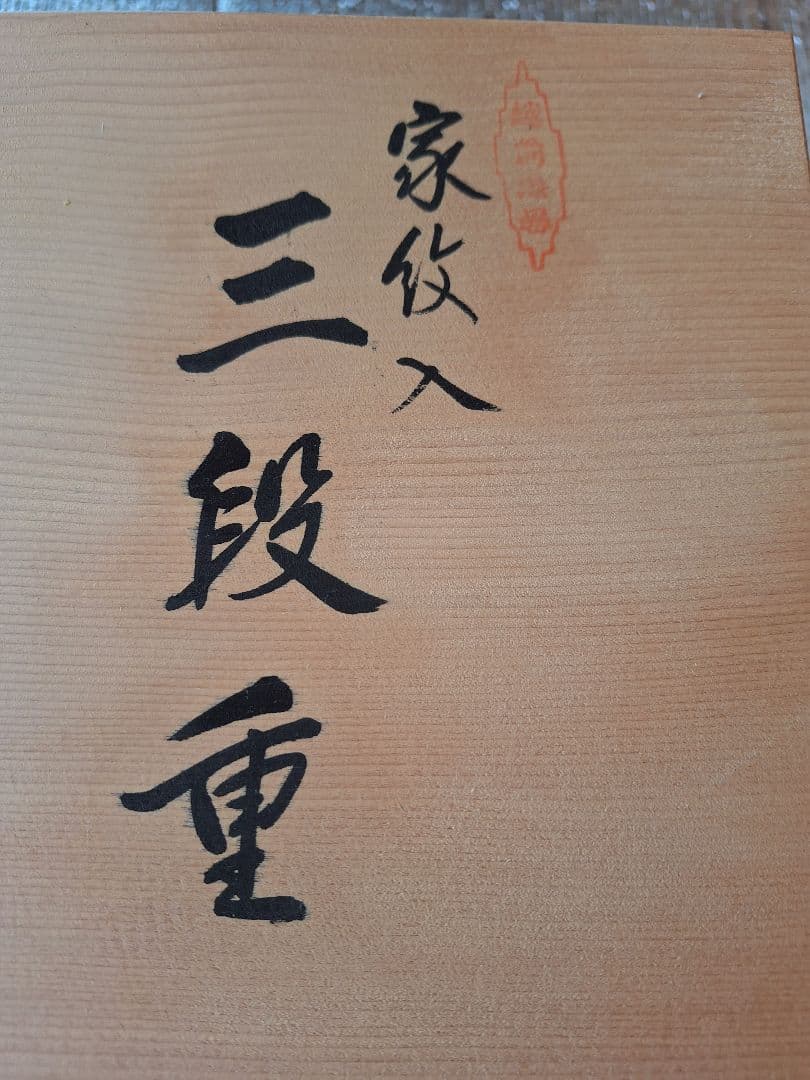 家紋入
三段重